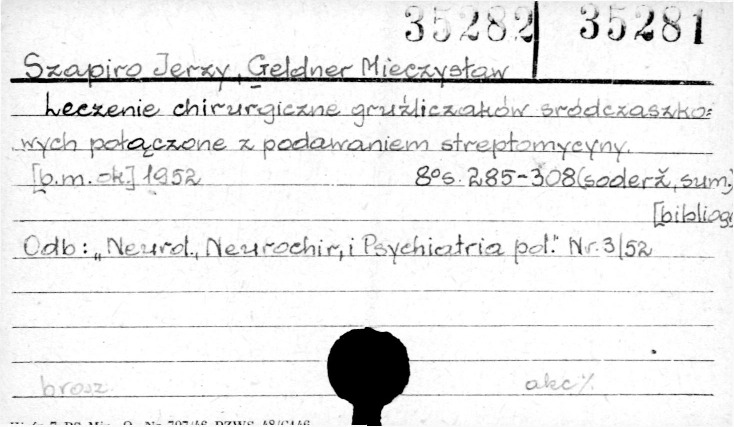 35282 35281
Szapiro Jerzy, Geldner Mieczysław
Leczenie chirurgiczne gruźliczaków śródczaszko=
wych połączone z podawaniem streptomycyny.
[b.m.ok.] 1952 8°s. 285-308 (soderż, sum,)
[bibliogr
Odb: „Neurol., Neurochir., i Psychiatria pol." Nr. 3/52
brosz. akc%